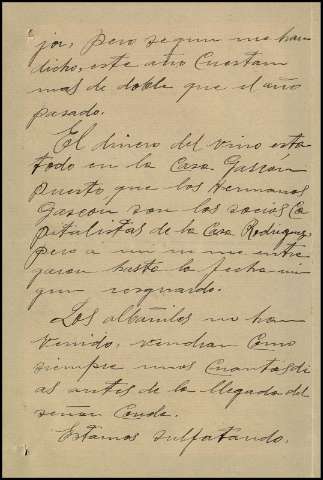 jor, pero segun me han
dicho, este año cuestan
mas de doble que el año
pasado.
El dinero del vino esta
todo en la Casa Gascón
puesto que los hermanos
Gascon son los socios Ca
pitalistas de la Casa Rodriguez,
pero a mi no me entre
garon hasta la fecha nin
gun resguardo.
Los albañiles no han
venido, vendran como
siempre unos cuantos di
as antes de la llegada del
señor Conde.
Estamos sulfatando.